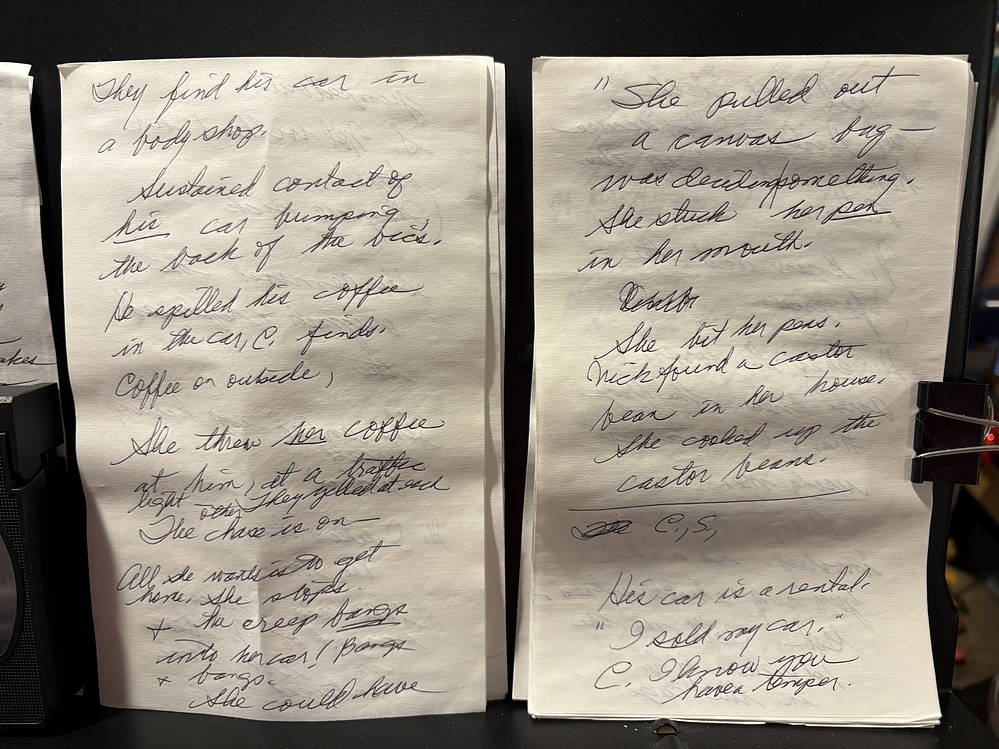 akes
They find his car in
a body shop.
Sustained contact of
his car bumping
the back of the vic's.
He spilled his coffee
in the car, C. finds.
Coffee on outside,
She threw her coffee
at him, at a traffic
light other They yelled at each
The chase is on—
All she wants is to get
home. She stops.
+ the creep bangs
into her car! Bangs
+ bangs.
She could have
"She pulled out
a canvas bag—
was deciding something.
She stuck her pen
in her mouth.
She bit her pens.
Nick found a castor
bean in her house.
She cooked up the
castor beans.
C.,S,
His car is a rental.
"I sold my car."
C. I know you
have a temper.